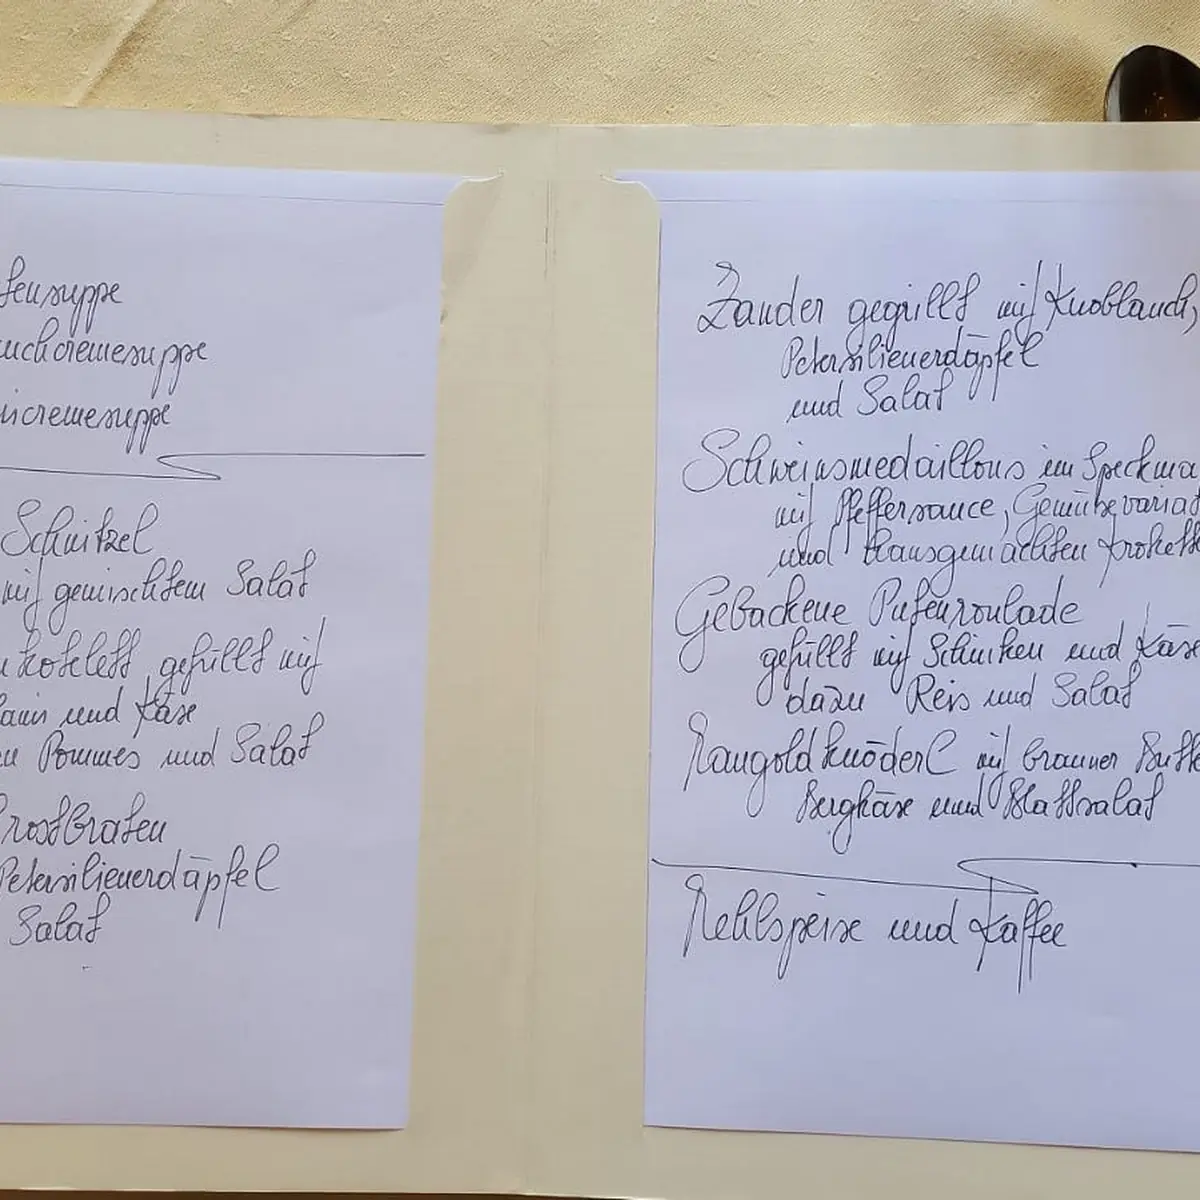 fensuppe
uchcremesuppe
incremesuppe
Schnitzel
mit gemischtem Salat
kotelett, gefüllt mit
und Käse
Pommes und Salat
rostbraten
Petersilienerdäpfel
Salat
Zander gegrillt mit Knoblauch,
Petersilienerdäpfel
und Salat
Schweinsmedaillons im Speckma
mit Pfeffersauce, Gemüsevariat
und hausgemachten Krokett
Gebackene Putenroulade
gefüllt mit Schinken und Käse
dazu Reis und Salat
Mangoldknöderl mit brauner Butte
Bergkäse und Blattsalat
Mehlspeise und Kaffee